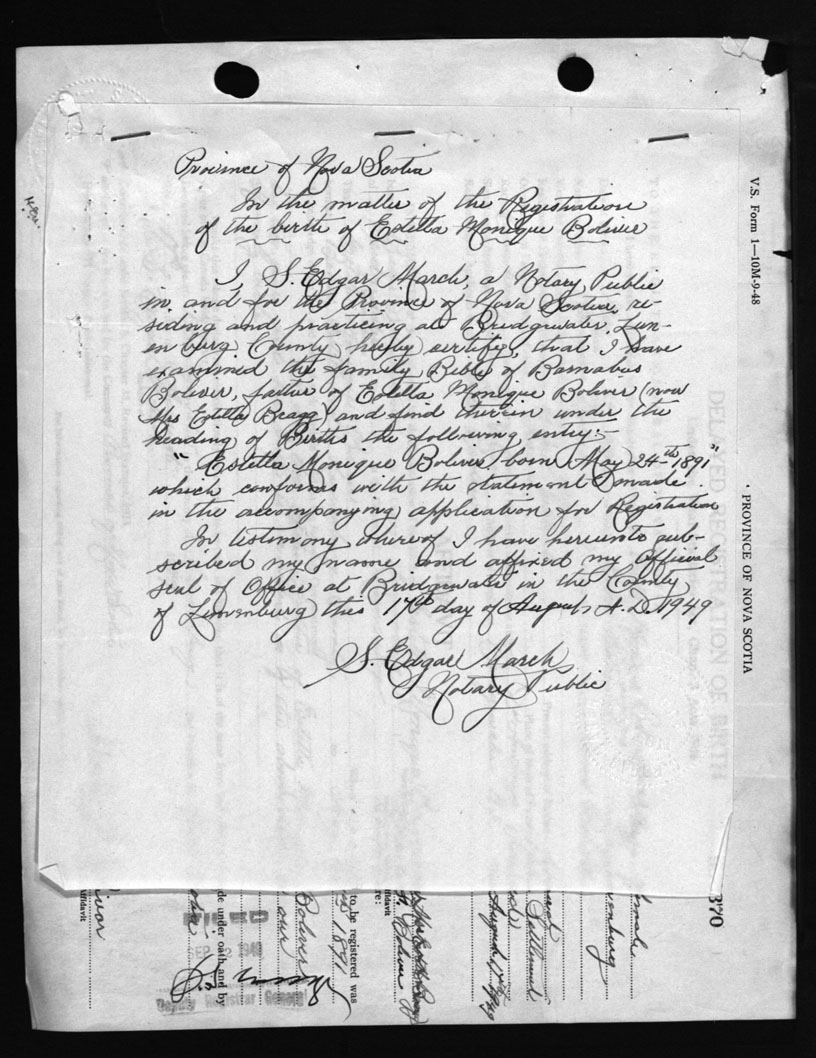 Province of Nova Scotia
In the matter of the Registration
of the birth of Estella Monique Boliver
I, S. Edgar March, a Notary Public
in and for the Province of Nova Scotia, re-
siding and practicing at Bridgewater, Lun-
enburg County hereby certify, that I have
examined the family Bible of Barnabus
Boliver, father of Estella Monique Boliver (now
Mrs Estella Bragg) and find therein under the
heading of Births the following entry:-
"Estella Monique Boliver, born May 24th 1891"
which conforms with the statement made
in the accompanying application for Registration
In testimony whereof I have hereunto sub-
scribed my name and affixed my Official
seal of Office at Bridgewater in the County
of Lunenburg this 17th day of August A.D. 1949
S. Edgar March
Notary Public
V.S. Form 1—10M-9-48
PROVINCE OF NOVA SCOTIA
DELAYED REGISTRATION OF BIRTH
370
Settlement
August 17th 1949
to be registered was
1891
Boliver
de under oath and by
Deputy Registrar General